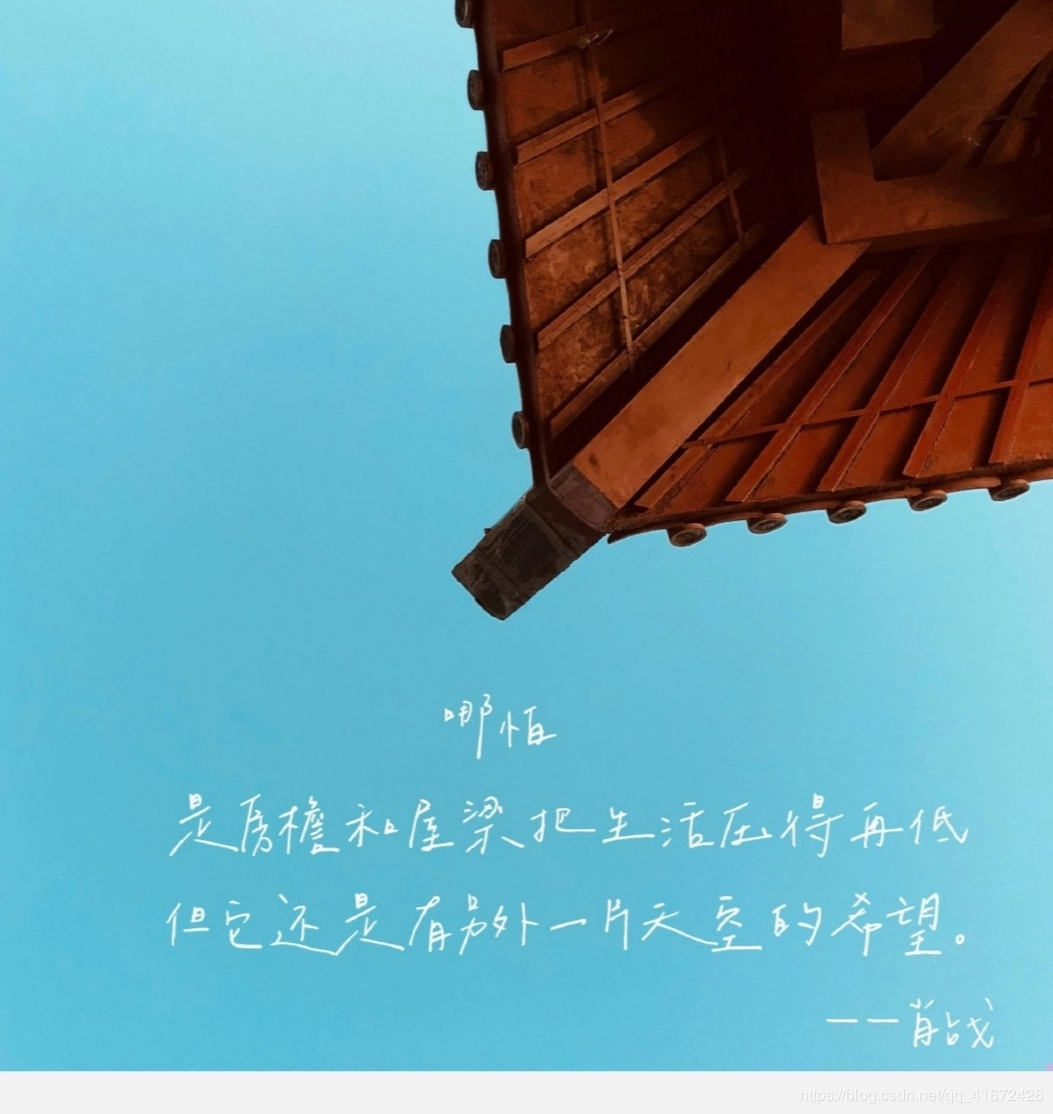 哪怕
是房檐和屋梁把生活压得再低
但它还是有另外一片天空的希望。
——肖战
https://blog.csdn.net/qq_41672428